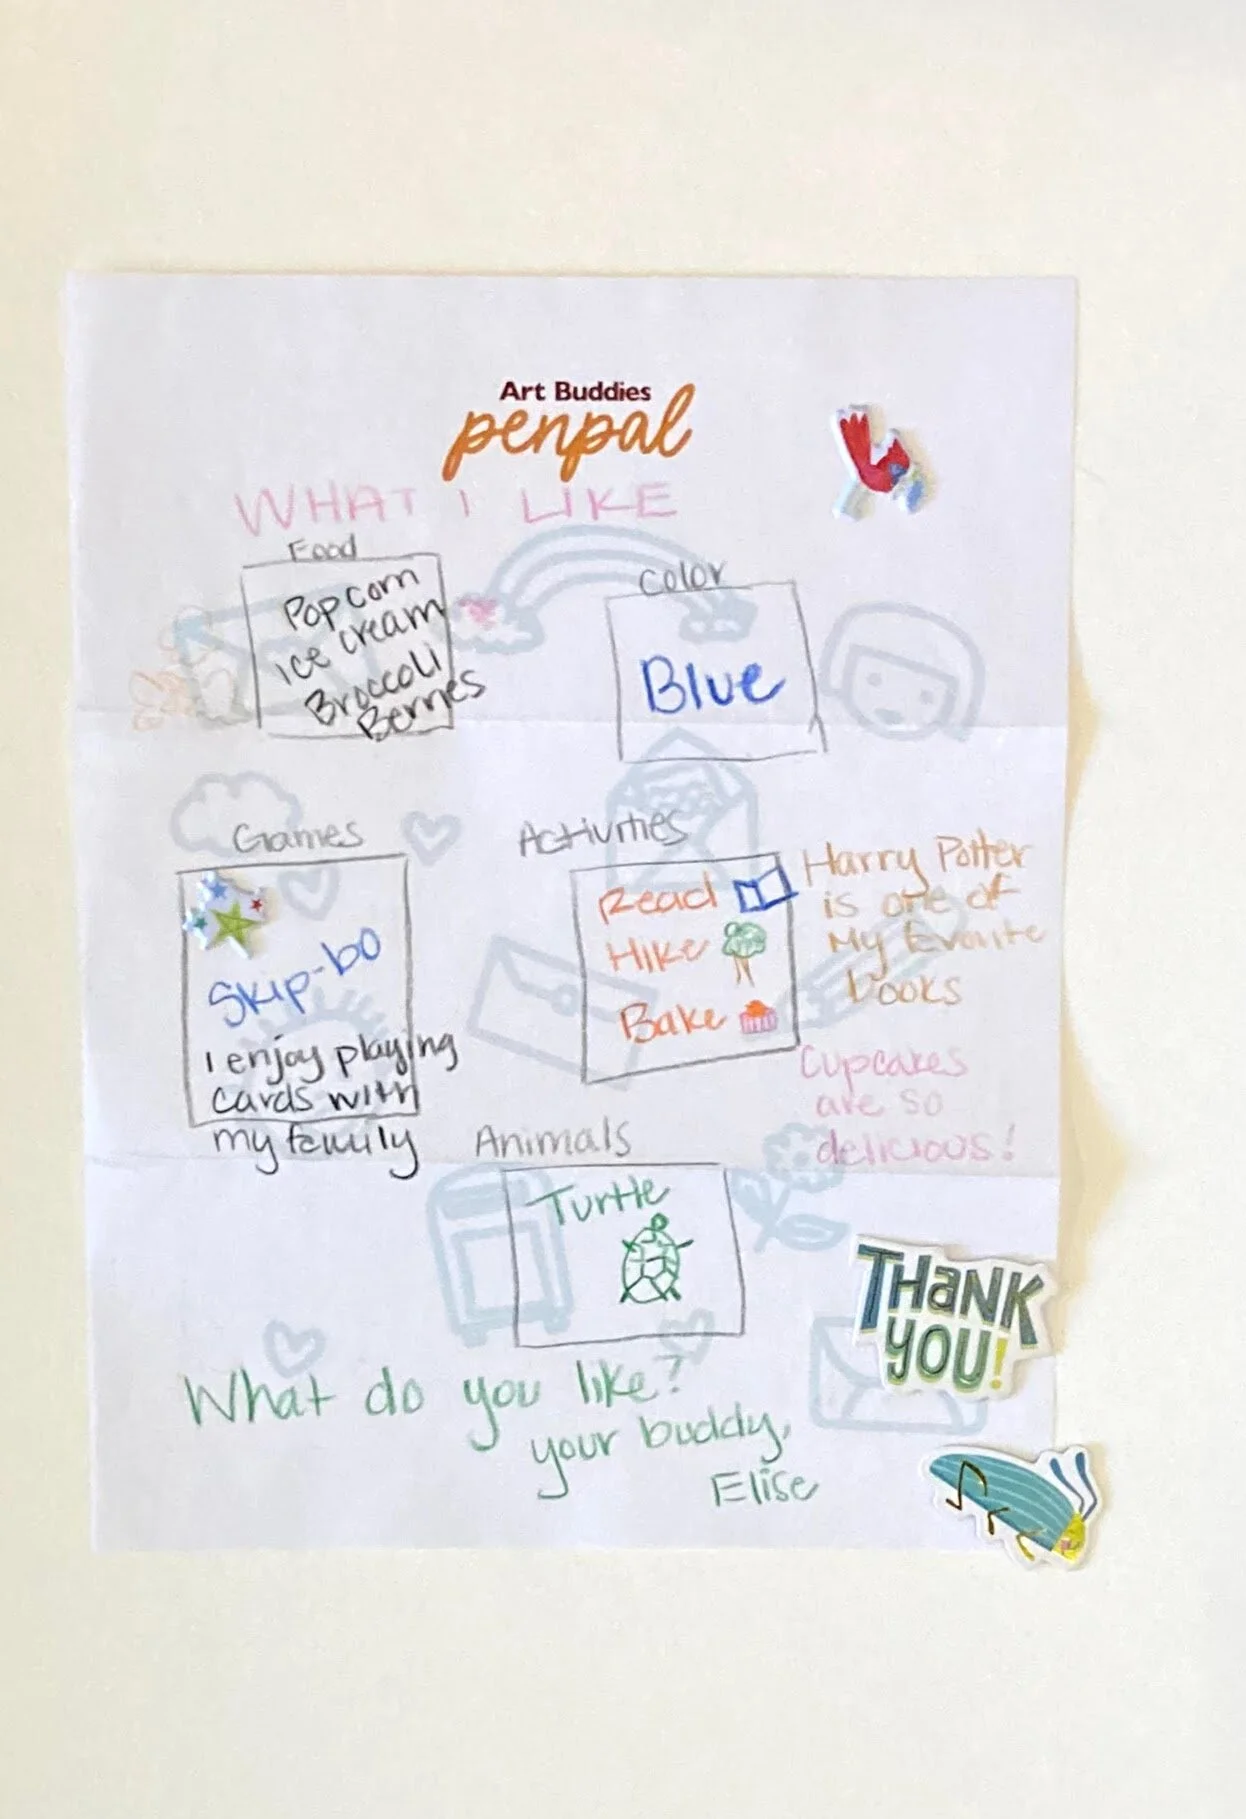 Art Buddies
penpal
WHAT I LIKE
Food
Popcorn
ice cream
Broccoli
Berries
Color
Blue
Games
Skip-bo
I enjoy playing
cards with
my family
Activities
Read
Hike
Bake
Harry Potter
is one of
My favorite
books
Cupcakes
are so
delicious!
Animals
Turtle
THANK
YOU!
What do you like?
your buddy,
Elise